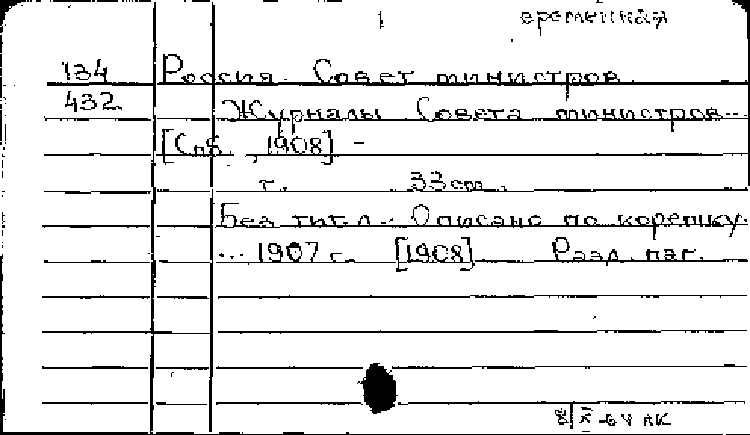 временная
134 Россия. Совет министров.
432 Журналы Совета министров...
[Спб., 1908] -
г. 33 см.
Без тит. л. Описано по корешку.
... 1907 г. [1908] Разд. паг.
8/X-64 АК